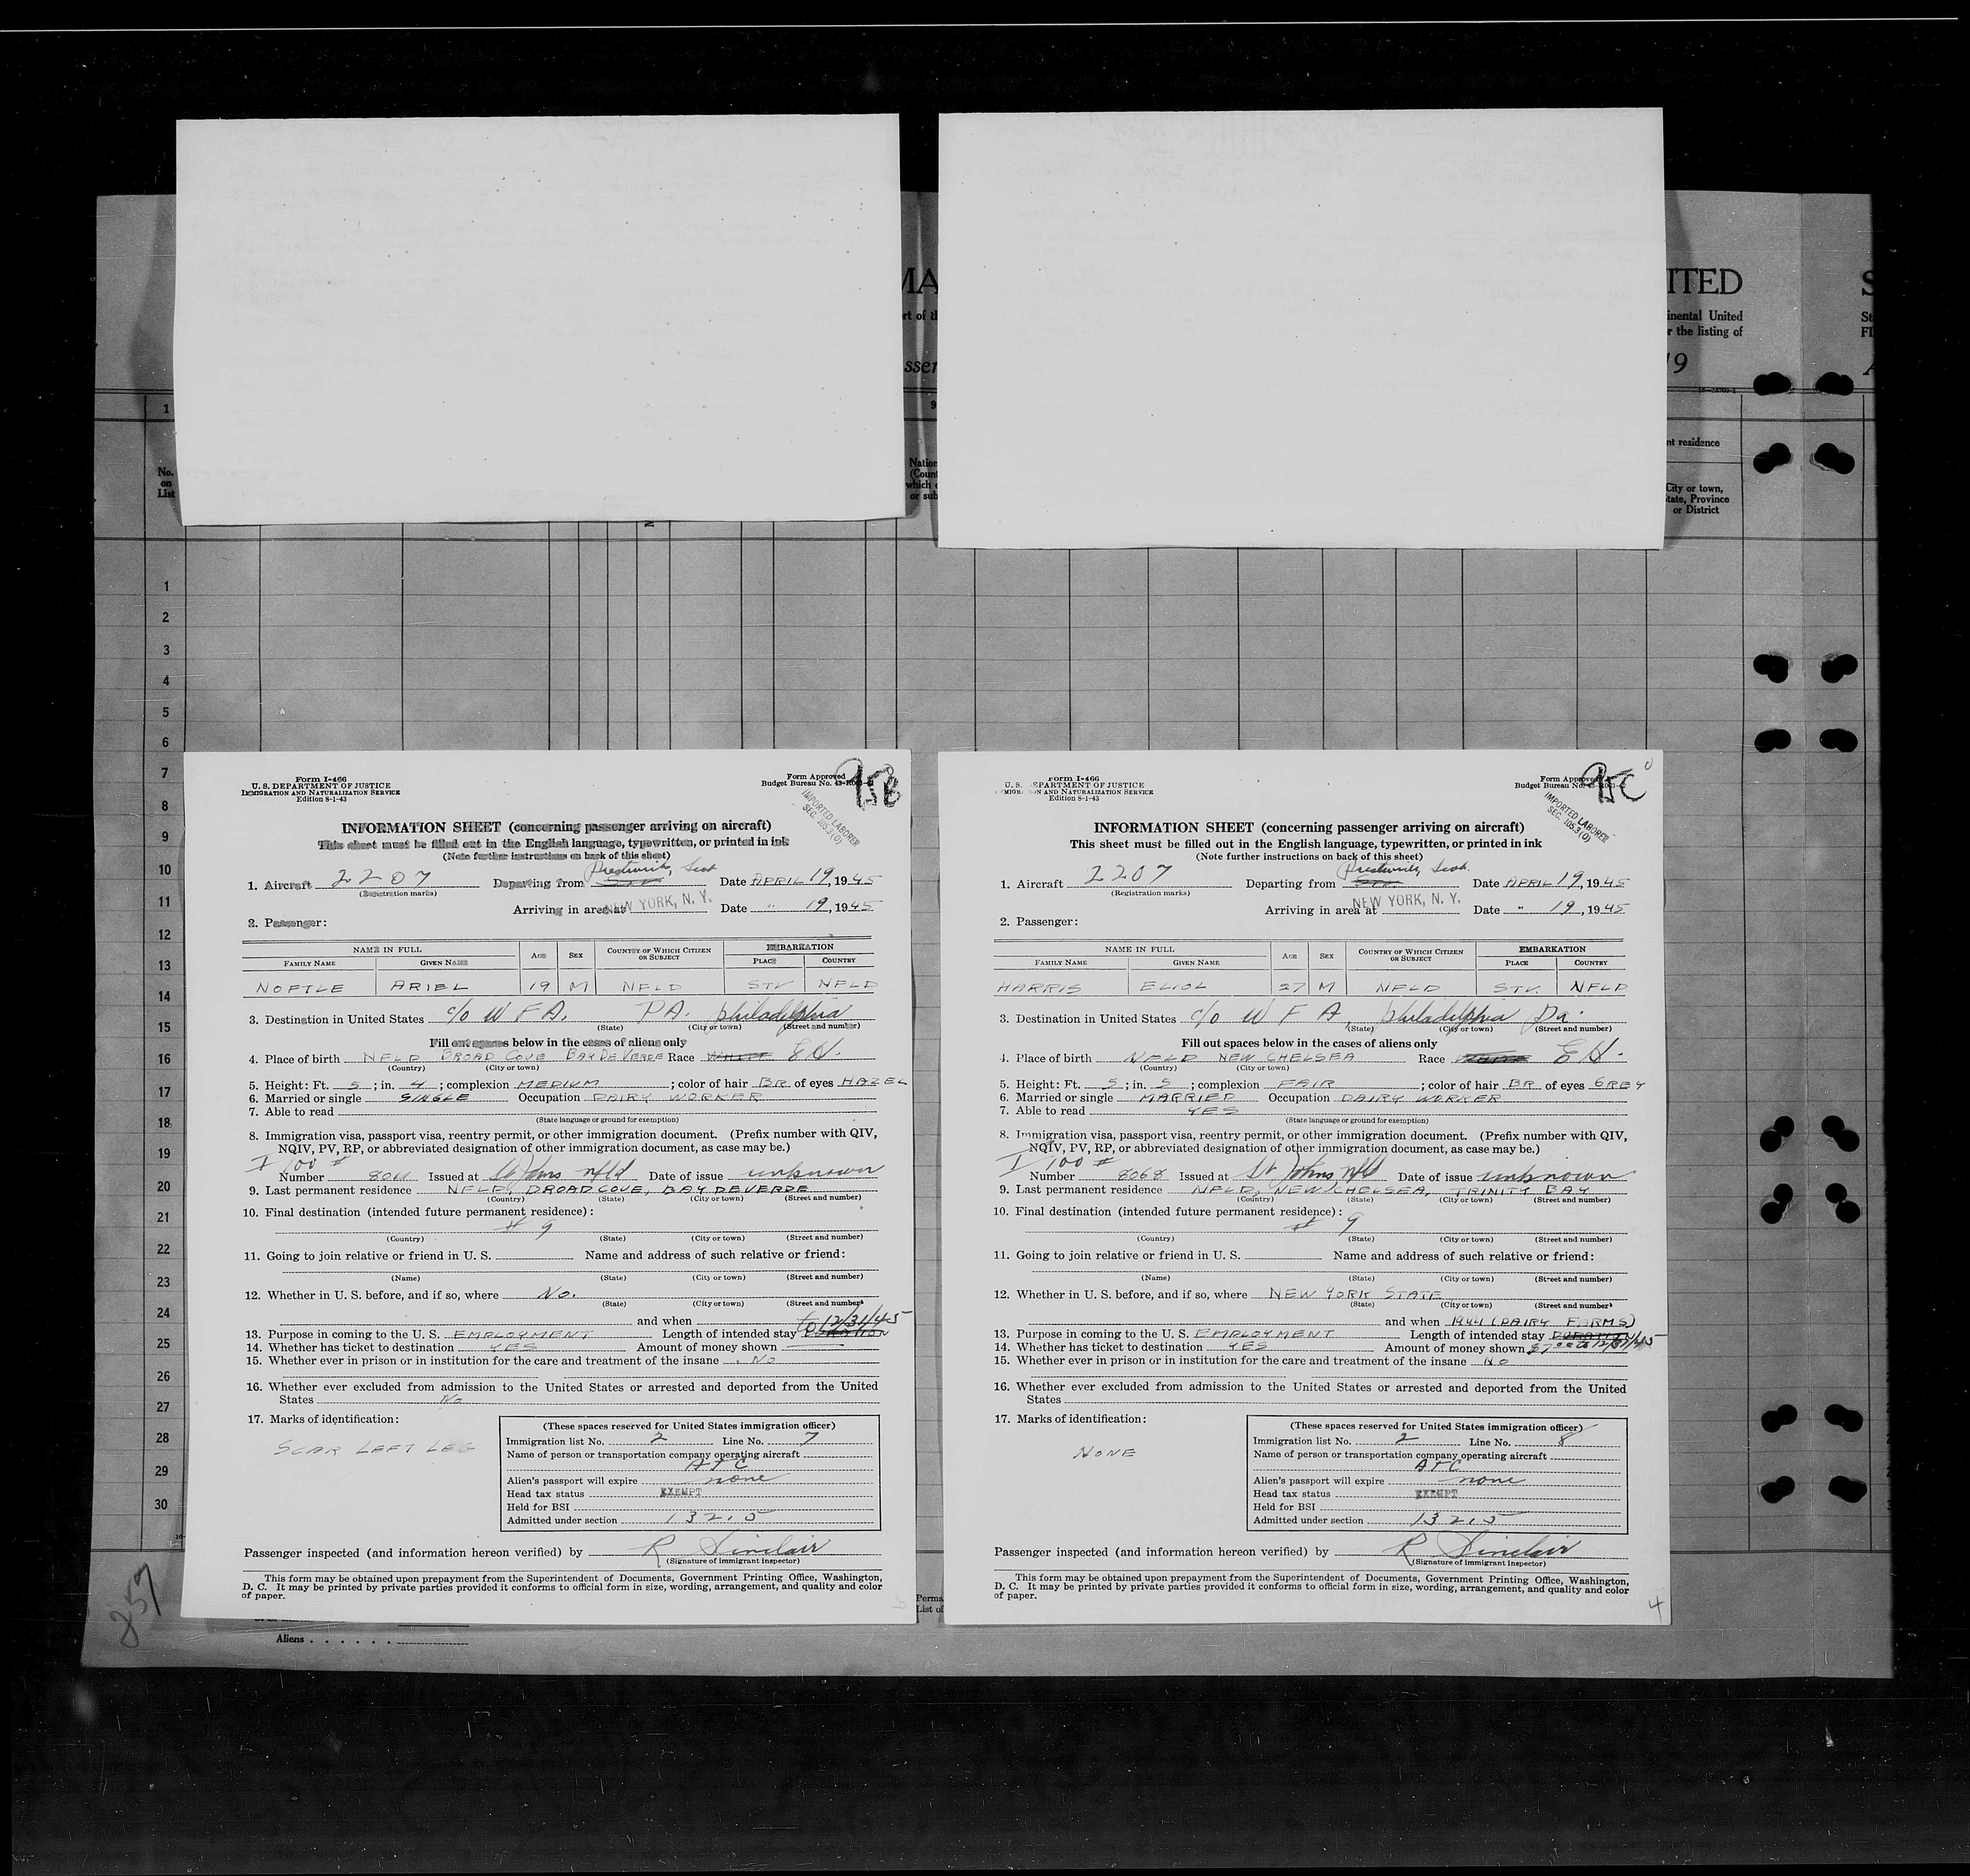 MA
rt of th
sser
ITED
inental United
r the listing of
19
S
St
FI
A
1
9
No.
on
List
Nation
(Count
which c
or sub
nt residence
City or town,
State, Province
or District
1
2
3
4
5
6
7
8
9
10
11
12
13
14
15
16
17
18
19
20
21
22
23
24
25
26
27
28
29
30
257
Aliens . . . . . .
Perma
List of
Form I-466
U. S. DEPARTMENT OF JUSTICE
IMMIGRATION AND NATURALIZATION SERVICE
Edition 8-1-43
Form Approved
Budget Bureau No. 43-R063-
95B
IMPORTED LABORER
SEC. 105.3(0)
INFORMATION SHEET (concerning passenger arriving on aircraft)
This sheet must be filled out in the English language, typewritten, or printed in ink
(Note further instructions on back of this sheet)
Prestwick, Scot
1. Aircraft 2207 Departing from STV Date APRIL 19, 1945
(Registration marks)
Arriving in area at NEW YORK, N. Y. Date " 19, 1945
2. Passenger:
NAME IN FULL AGE SEX COUNTRY OF WHICH CITIZEN OR SUBJECT EMBARKATION
FAMILY NAME GIVEN NAME PLACE COUNTRY
NOFTLE ARIEL 19 M NFLD STV NFLD
3. Destination in United States c/o W F A, PA. Philadelphia
(State) (City or town) (Street and number)
Fill out spaces below in the cases of aliens only
4. Place of birth NFLD BROAD COVE BAY DE VERDE Race WHITE EH.
(Country) (City or town)
5. Height: Ft. 5; in. 4; complexion MEDIUM; color of hair BR. of eyes HAZEL
6. Married or single SINGLE Occupation DAIRY WORKER
7. Able to read
(State language or ground for exemption)
8. Immigration visa, passport visa, reentry permit, or other immigration document. (Prefix number with QIV,
NQIV, PV, RP, or abbreviated designation of other immigration document, as case may be.)
I 100 #
Number 8011 Issued at St Johns nfld Date of issue unknown
9. Last permanent residence NFLD, BROADCOVE, BAY DEVERDE
(Country) (State) (City or town) (Street and number)
10. Final destination (intended future permanent residence):
# 9
(Country) (State) (City or town) (Street and number)
11. Going to join relative or friend in U. S. Name and address of such relative or friend:
(Name) (State) (City or town) (Street and number)
12. Whether in U. S. before, and if so, where No.
(State) (City or town) (Street and number)
and when
to 12/31/45
13. Purpose in coming to the U. S. EMPLOYMENT Length of intended stay DURATION
14. Whether has ticket to destination YES Amount of money shown
15. Whether ever in prison or in institution for the care and treatment of the insane No
16. Whether ever excluded from admission to the United States or arrested and deported from the United
States No
17. Marks of identification:
SCAR LEFT LEG
(These spaces reserved for United States immigration officer)
Immigration list No. 2 Line No. 7
Name of person or transportation company operating aircraft
ATC
Alien's passport will expire none
Head tax status EXEMPT
Held for BSI
Admitted under section 132.5
Passenger inspected (and information hereon verified) by R Sinclair
(Signature of immigrant inspector)
This form may be obtained upon prepayment from the Superintendent of Documents, Government Printing Office, Washington,
D. C. It may be printed by private parties provided it conforms to official form in size, wording, arrangement, and quality and color
of paper.
3
Form I-466
U. S. DEPARTMENT OF JUSTICE
IMMIGRATION AND NATURALIZATION SERVICE
Edition 8-1-43
Form Approved
Budget Bureau No. 43-R063-
95C
IMPORTED LABORER
SEC. 105.3(0)
INFORMATION SHEET (concerning passenger arriving on aircraft)
This sheet must be filled out in the English language, typewritten, or printed in ink
(Note further instructions on back of this sheet)
Prestwick, Scot.
1. Aircraft 2207 Departing from STV Date APRIL 19, 1945
(Registration marks)
Arriving in area at NEW YORK, N. Y. Date " 19, 1945
2. Passenger:
NAME IN FULL AGE SEX COUNTRY OF WHICH CITIZEN OR SUBJECT EMBARKATION
FAMILY NAME GIVEN NAME PLACE COUNTRY
HARRIS ELIOL 27 M NFLD STV. NFLD
3. Destination in United States c/o W F A, Philadelphia Pa.
(State) (City or town) (Street and number)
Fill out spaces below in the cases of aliens only
4. Place of birth NFLD NEW CHELSEA Race WHITE EH.
(Country) (City or town)
5. Height: Ft. 5; in. 5; complexion FAIR; color of hair BR. of eyes GREY
6. Married or single MARRIED Occupation DAIRY WORKER
7. Able to read YES
(State language or ground for exemption)
8. Immigration visa, passport visa, reentry permit, or other immigration document. (Prefix number with QIV,
NQIV, PV, RP, or abbreviated designation of other immigration document, as case may be.)
I 100 #
Number 8068 Issued at St Johns nfld Date of issue unknown
9. Last permanent residence NFLD, NEW CHELSEA, TRINITY BAY
(Country) (State) (City or town) (Street and number)
10. Final destination (intended future permanent residence):
# 9
(Country) (State) (City or town) (Street and number)
11. Going to join relative or friend in U. S. Name and address of such relative or friend:
(Name) (State) (City or town) (Street and number)
12. Whether in U. S. before, and if so, where NEW YORK STATE
(State) (City or town) (Street and number)
and when 1944 (DAIRY FARMS)
13. Purpose in coming to the U. S. EMPLOYMENT Length of intended stay DURATION
14. Whether has ticket to destination YES Amount of money shown $7.00 to 12/31/45
15. Whether ever in prison or in institution for the care and treatment of the insane No
16. Whether ever excluded from admission to the United States or arrested and deported from the United
States
17. Marks of identification:
NONE
(These spaces reserved for United States immigration officer)
Immigration list No. 2 Line No. 8
Name of person or transportation company operating aircraft
ATC
Alien's passport will expire none
Head tax status EXEMPT
Held for BSI
Admitted under section 132.5
Passenger inspected (and information hereon verified) by R Sinclair
(Signature of immigrant inspector)
This form may be obtained upon prepayment from the Superintendent of Documents, Government Printing Office, Washington,
D. C. It may be printed by private parties provided it conforms to official form in size, wording, arrangement, and quality and color
of paper.
4